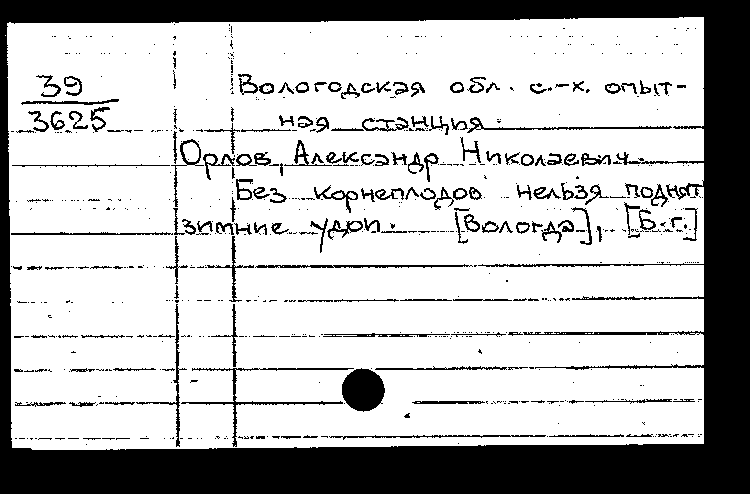 39
3625
Вологодская обл. с.-х. опыт-
ная станция.
Орлов, Александр Николаевич.
Без корнеплодов нельзя поднят
зимние удои. [Вологда], [Б.г.]